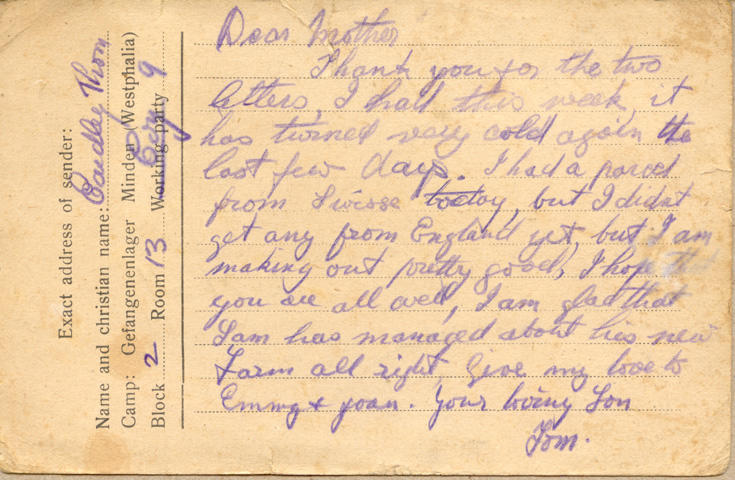 Exact address of sender:
Name and christian name: Pardley Thom
Camp: Gefangenenlager Minden (Westphalia)
Block 2 Room 13 Working party 9
Dear Mother
Thank you for the two
letters, I had this week, it
has turned very cold again the
last few days. I had a parcel
from today, but I didnt
get any from England yet, but I am
making out pretty good, I hope that
you are all well, I am glad that
Sam has managed about his new
Farm all right Give my love to
Emmy + Joan. Your loving Son
Tom.